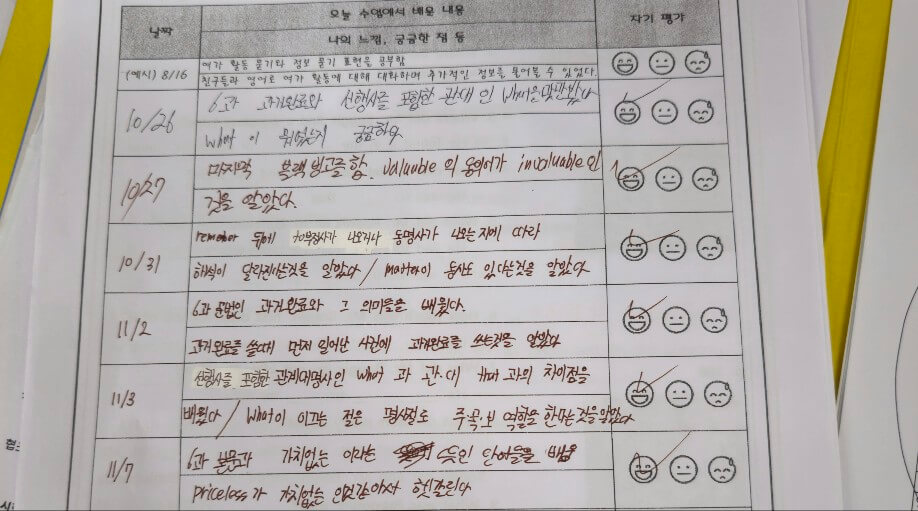 날짜
오늘 수업에서 배운 내용
자기 평가
나의 느낌, 궁금한 점 등
(예시) 8/16
여가 활동 묻기와 정보 묻기 표현을 공부함
친구들과 영어로 여가 활동에 대해 대화하며 추가적인 정보를 물어볼 수 있었다.
10/26
6과 과거완료와 선행사를 포함한 관대인 what을 배웠다
what이 뭐였는지 궁금하다
10/27
마지막 블랙빙고를 함. valuable의 동의어가 invaluable인
것을 알았다.
10/31
remember 뒤에 to부정사가 나오거나 동명사가 나오는지에 따라
해석이 달라진다는것을 알았다 / matter이 동사도 있다는것을 알았다
11/2
6과 문법인 과거완료와 그 의미들을 배웠다.
과거완료를 쓸때 먼저 일어난 사건에 과거완료를 쓰는것을 알았다
11/3
선행사를 포함한 관계대명사인 what과 관·대 that과의 차이점을
배웠다 / what이 이끄는 절은 명사절로 주·목·보 역할을 한다는것을 알았다
11/7
6과 본문과 가치없는 이라는 뜻인 단어들을 배움
priceless가 가치없는 인것같아서 헷갈린다